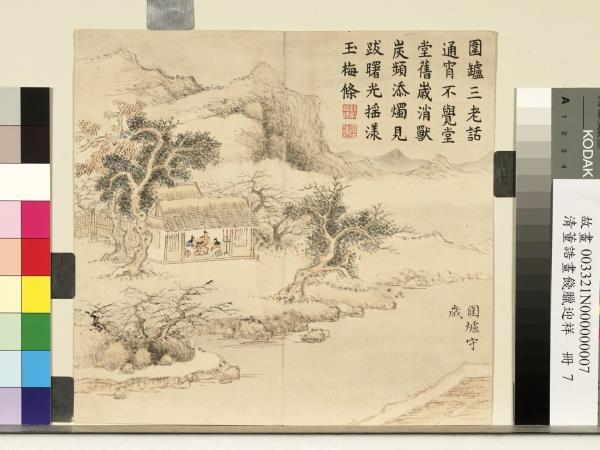 圍罏三老話
通宵不覺堂
堂舊歲消獸
炭頻添燭見
跋曙光搖漾
玉梅條
圍罏守
歲
KODAK
A 1 2 3 4
故畫 003321N000000007
清董誥畫餞臘迎祥 冊 7